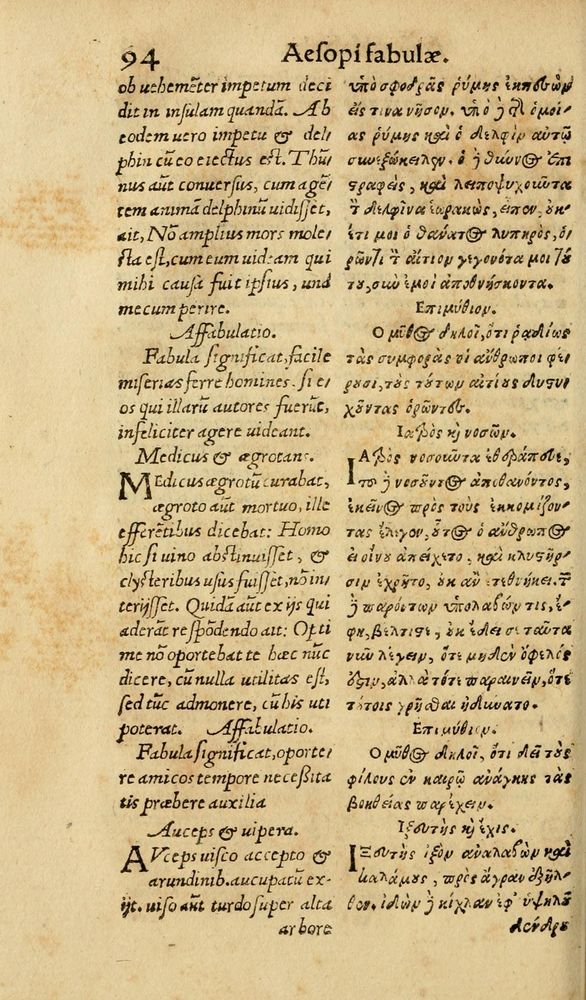 94 Aesopi fabulæ.
ob uehemẽter impetum deci
dit in insulam quandã. Ab
eodem uero impetu & del,
phin cũ eo eiectus est. Thũ,
nus aũt conuersus, cum agẽ,
tem animã delphinũ uidisset,
ait, Nõ amplius mors mole,
sta est, cum eum uideam qui
mihi causa fuit ipsius, unà
mecum perire.
Affabulatio.
Fabula significat, facile
miserias ferre homines, si e,
os qui illarũ autores fuerũt,
infeliciter agere uideant.
Medicus & ægrotans.
MEdicus ægrotũ curabat,
ægroto aũt mortuo, ille
efferẽtibus dicebat: Homo
hic si uino abstinuisset, &
clysteribus usus fuisset, nõ in,
terijsset. Quidã aũt ex ijs qui
aderãt respõdendo ait: Opti
me nõ oportebat te hæc nũc
dicere, cũ nulla utilitas est,
sed tũc admonere, cũ his uti
poterat. Affabulatio.
Fabula significat, oporte,
re amicos tempore necessita
tis præbere auxilia
Auceps & uipera.
AVceps uisco accepto &
arundinib. aucupatũ ex,
ijt. uiso aũt turdo super alta
arbore
ὑπὸ σφοδρᾶς ῥύμης ἐκπεσὼν
εἴς τινα νῆσον. ὑπὸ ἢ τ ὁμοί,
ας ῥύμης καὶ ὁ δελφὶν αὐτῷ
συνεξώκειλεν. ὁ ἢ θύννος ἐπι
στραφεὶς, καὶ λειποψυχοῦντα
τ δελφῖνα ἑωρακὼς, εἶπον, οὐκ
ἔτι μοι ὁ θάνατος λυπηρὸς, ὁ,
ρῶντι τ αἴτιον γεγονότα μοι τού
του, σὺν ἐμοὶ ἀποθνήσκοντα.
Ἐπιμύθιον.
Ὁ μῦθος δηλοῖ, ὅτι ῥαδίως
τὰς συμφορὰς οἱ ἄνθρωποι φέ,
ρουσι, τοὺς τούτων αἰτίους δυστυ,
χοῦντας ὁρῶντες.
Ἰατρὸς κὶ νοσῶν.
ΙΑτρὸς νοσοῦντα ἐθεράπευε,
τοῦ ἢ νοσοῦντος ἀποθανόντος,
ἐκεῖνος πρὸς τοὺς ἐκκομίζον,
τας ἔλεγεν, οὗτος ὁ ἄνθρωπος
εἰ οἴνου ἀπείχετο, καὶ κλυστῆρ,
σιν ἐχρῆτο, οὐκ ἂν ἐτεθνήκει. τ
ἢ παρόντων ὑπολαβών τις, ἔ,
φη, βέλτιστε, οὐκ ἔδει σε ταῦτα
νῦν λέγειν, ὅτε μηδὲν ὄφελός
ἐστιν, ἀλλὰ τότε παραινεῖν, ὅτε
τούτοις χρῆσθαι ἠδύνατο.
Ἐπιμύθιον.
Ὁ μῦθος δηλοῖ, ὅτι δεῖ τοὺς
φίλους ἐν καιρῷ ἀνάγκης τὰς
βοηθείας παρέχειν.
Ἰξευτὴς κὶ ἔχις.
ΙΞευτὴς ἰξὸν ἀναλαβὼν καὶ
καλάμους, πρὸς ἄγραν ἐξῆλ,
θεν. ἰδὼν ἢ κίχλαν ἐφ' ὑψηλοῦ
δένδρου